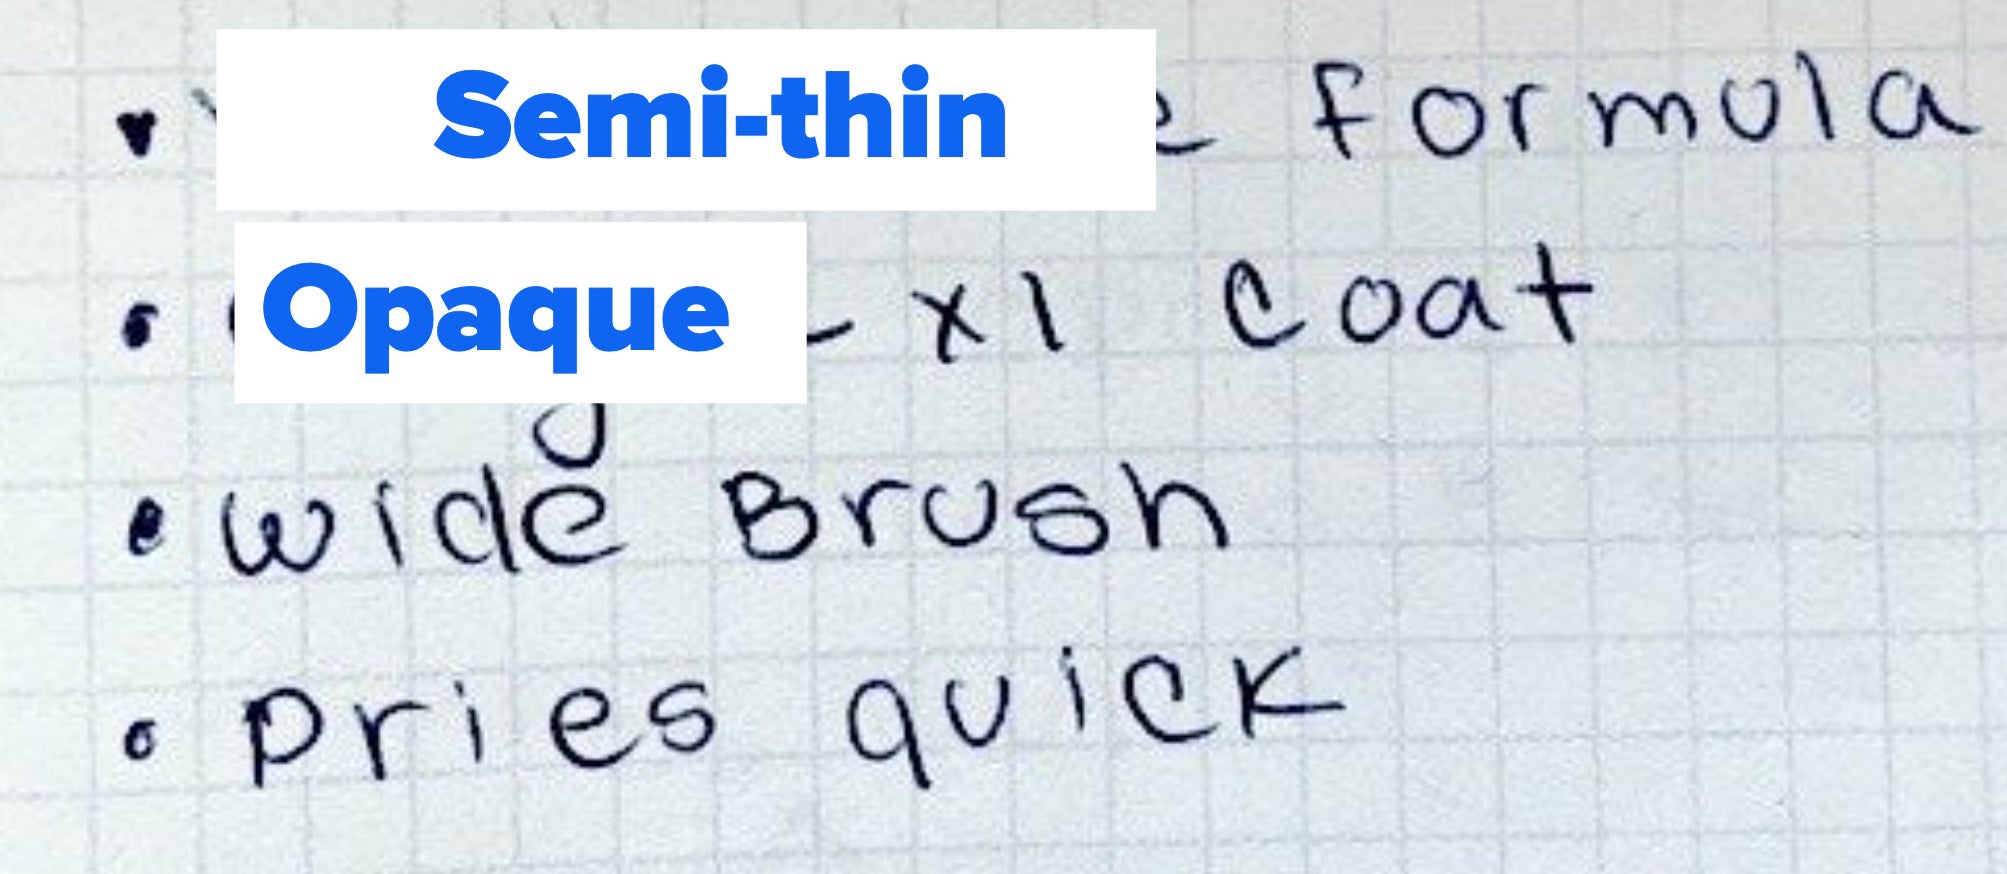 Semi-thin formula
Opaque - x1 coat
wide Brush
Dries quick